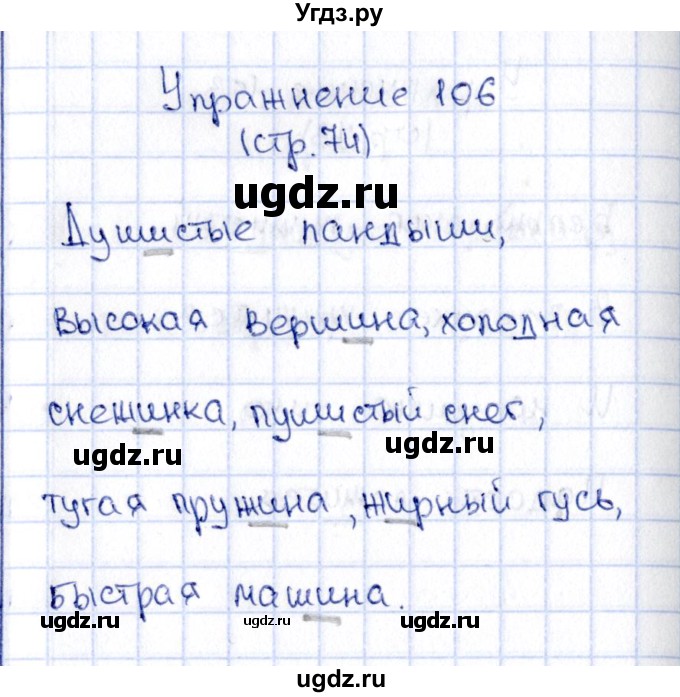 Угдз.ру
Упражнение 106
(стр.74)
ugdz.ru
Душистые ландыши,
высокая вершина, холодная
ugdz.ru
снежинка, пушистый снег,
ugdz.ru ugdz.ru
тугая пружина, жирный гусь,
быстрая машина.
ugdz.ru ugdz.ru ugdz.ru
ugdz.ru